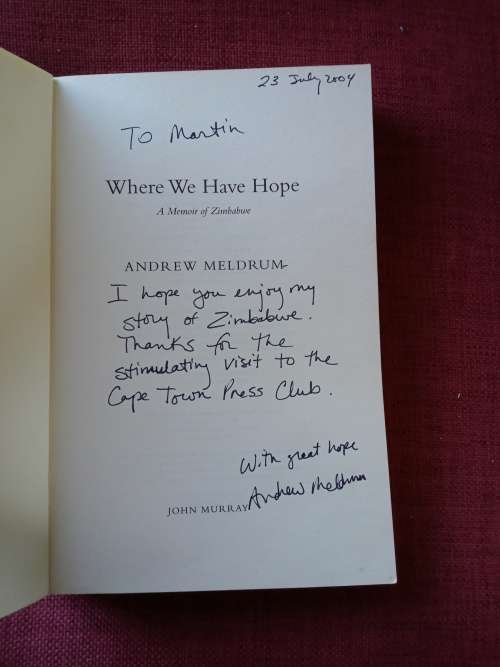 23 July 2004
To Martin
Where We Have Hope
A Memoir of Zimbabwe
ANDREW MELDRUM
I hope you enjoy my
story of Zimbabwe.
Thanks for the
stimulating visit to the
Cape Town Press Club.
With great hope
Andrew Meldrum
JOHN MURRAY